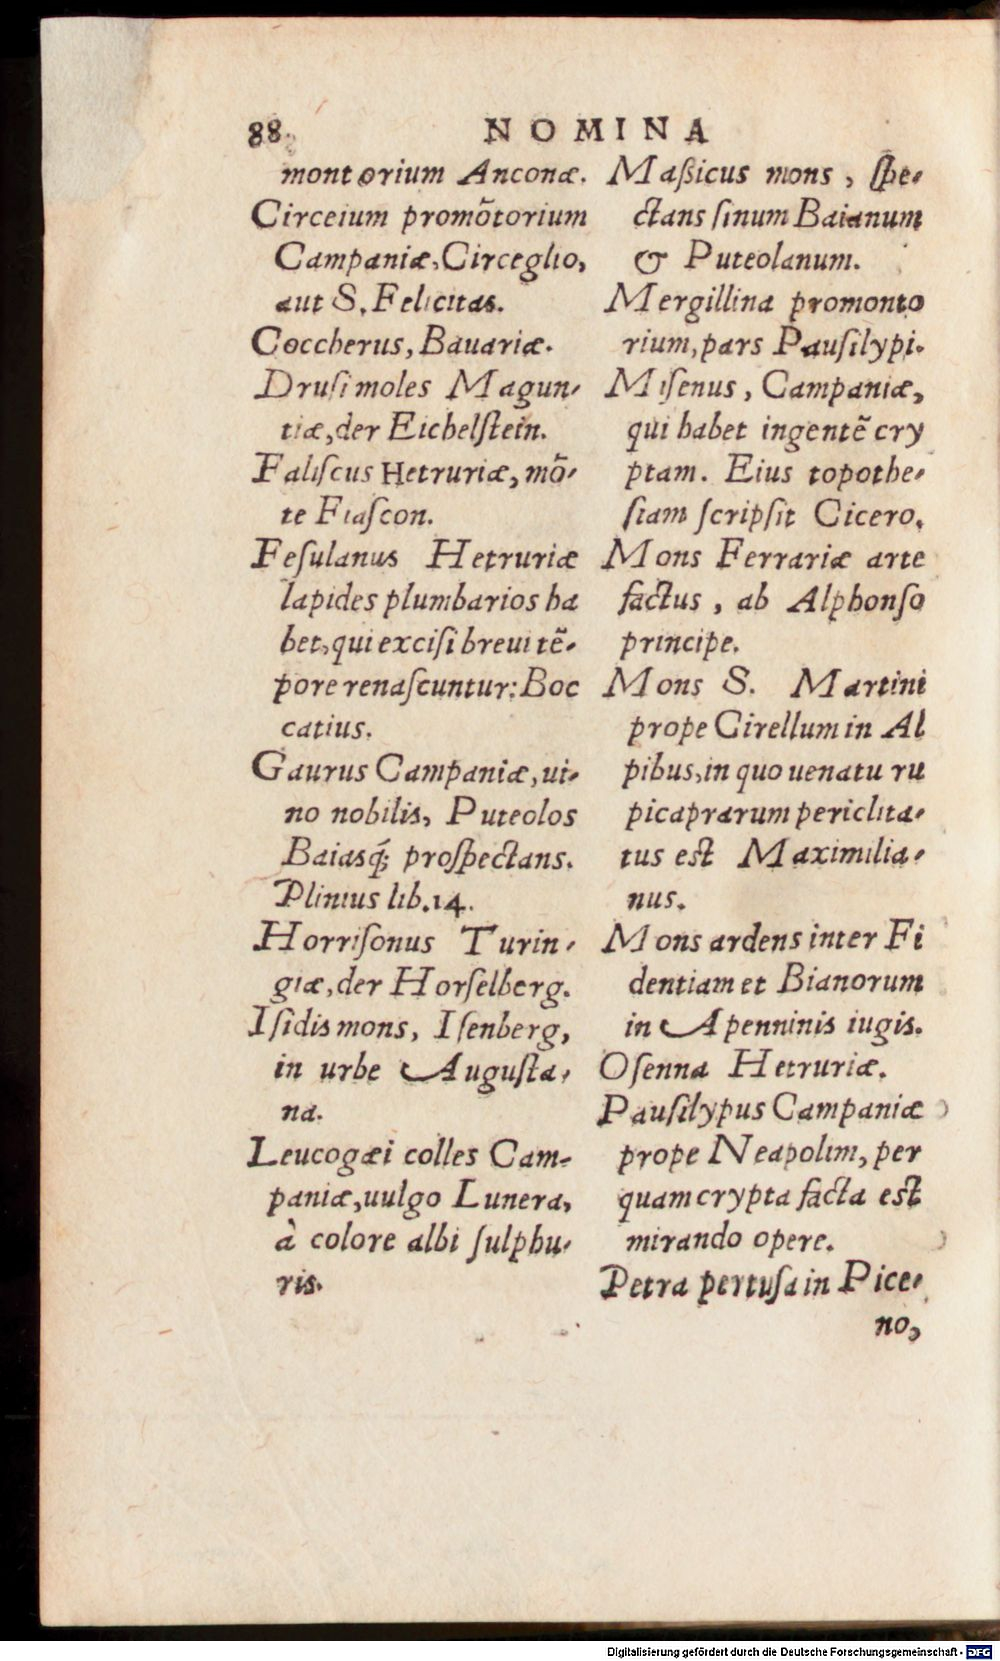 88
NOMINA
montorium Anconæ.
Circeium promõtorium
Campaniæ, Circeglio,
aut S. Felicitas.
Coccherus, Bauariæ.
Druſi moles Magun-
tiæ, der Eichelſtein.
Faliſcus Hetruriæ, mõ-
te Fiaſcon.
Feſulanus Hetruriæ
lapides plumbarios ha
bet, qui exciſi breui tẽ-
pore renaſcuntur: Boc
catius.
Gaurus Campaniæ, ui-
no nobilis, Puteolos
Baiasq́; proſpectans.
Plinius lib. 14.
Horriſonus Turin-
giæ, der Horſelberg.
Iſidis mons, Iſenberg,
in urbe Auguſta-
na.
Leucogæi colles Cam-
paniæ, uulgo Lunera,
à colore albi ſulphu-
ris.
Maßicus mons, ſpe-
ctans ſinum Baianum
& Puteolanum.
Mergillina promonto
rium, pars Pauſilypi.
Miſenus, Campaniæ,
qui habet ingentẽ cry
ptam. Eius topothe-
ſiam ſcripſit Cicero.
Mons Ferrariæ arte
factus, ab Alphonſo
principe.
Mons S. Martini
prope Cirellum in Al
pibus, in quo uenatu ru
picaprarum periclita-
tus est Maximilia-
nus.
Mons ardens inter Fi
dentiam et Bianorum
in Apenninis iugis.
Oſenna Hetruriæ.
Pauſilypus Campaniæ
prope Neapolim, per
quam crypta facta est
mirando opere.
Petra pertuſa in Pice-
no,
Digitalisierung gefördert durch die Deutsche Forschungsgemeinschaft - DFG